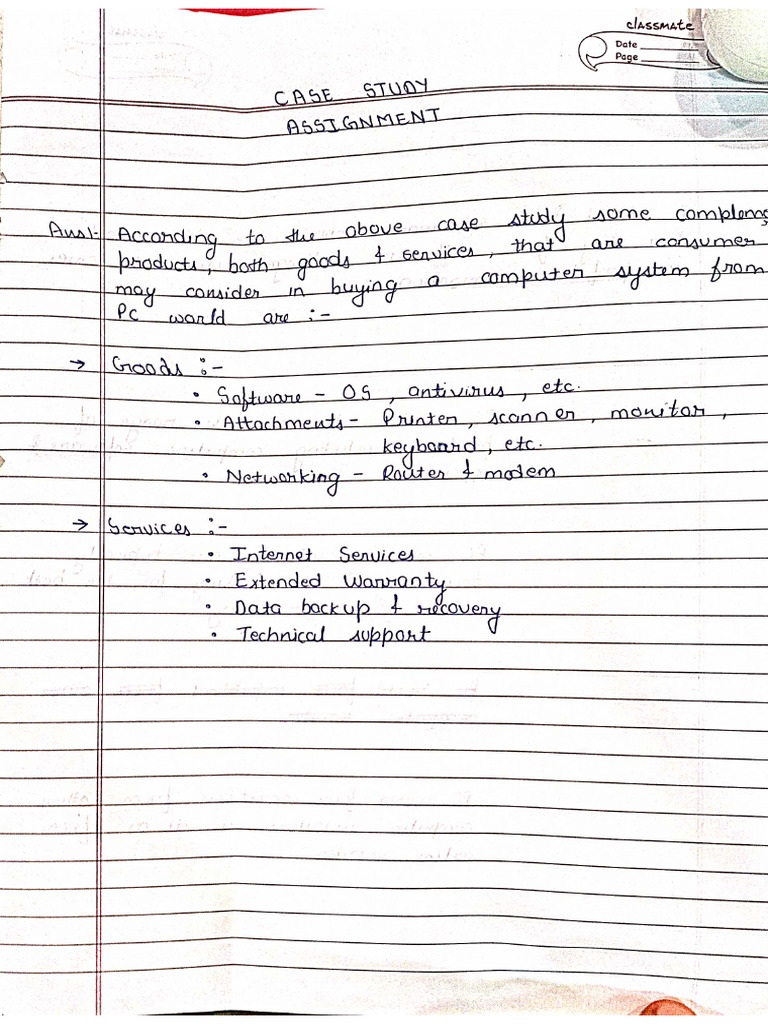 classmate
Date
Page
CASE STUDY
ASSIGNMENT
Ans1- According to the above case study some
products, both goods & services, that are consumer
may consider in buying a computer system from
PC world are :-
→ Goods :-
• Software - OS , antivirus , etc.
• Attachments - Printer , scanner , monitor ,
keyboard , etc.
• Networking - Router & modem
→ Services :-
• Internet Services
• Extended Warranty
• Data backup & recovery
• Technical support